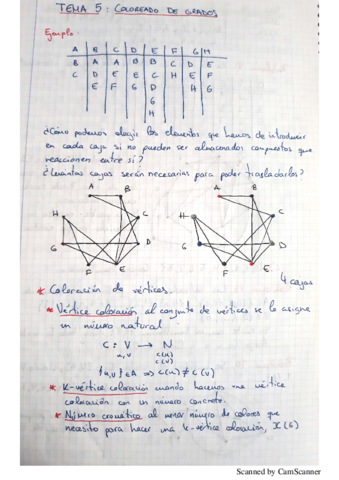 TEMA 5: COLOREADO DE GRAFOS
Ejemplo:
A B C D E F G H
B A A B B C D E
C D E E C H E F
E F G D H G
G
H
¿Cómo podemos elegir los elementos que hemos de introducir
en cada caja si no pueden ser almacenados compuestos que
reaccionen entre sí?
¿Cuántas cajas serán necesarias para poder trasladarlos?
A B
H C
G D
F E
A B
H C
G D
F E
4 cajas
* Coloración de vértices.
* Vértice coloración al conjunto de vértices se le asigna
un número natural
C : V → N
u,v c(u)
c(v)
{u,v} ∈ A ⇒ c(u) ≠ c(v)
* K-vértice coloración cuando hacemos una vértice
coloración con un número concreto.
* Número cromático al menor número de colores que
necesito para hacer una k-vértice coloración, X(G)
Scanned by CamScanner